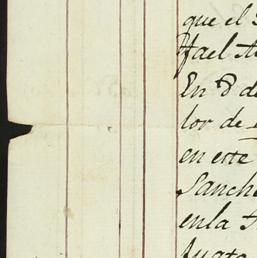 que el
fael
En 8 de
lor de
en este
Sanche
en la